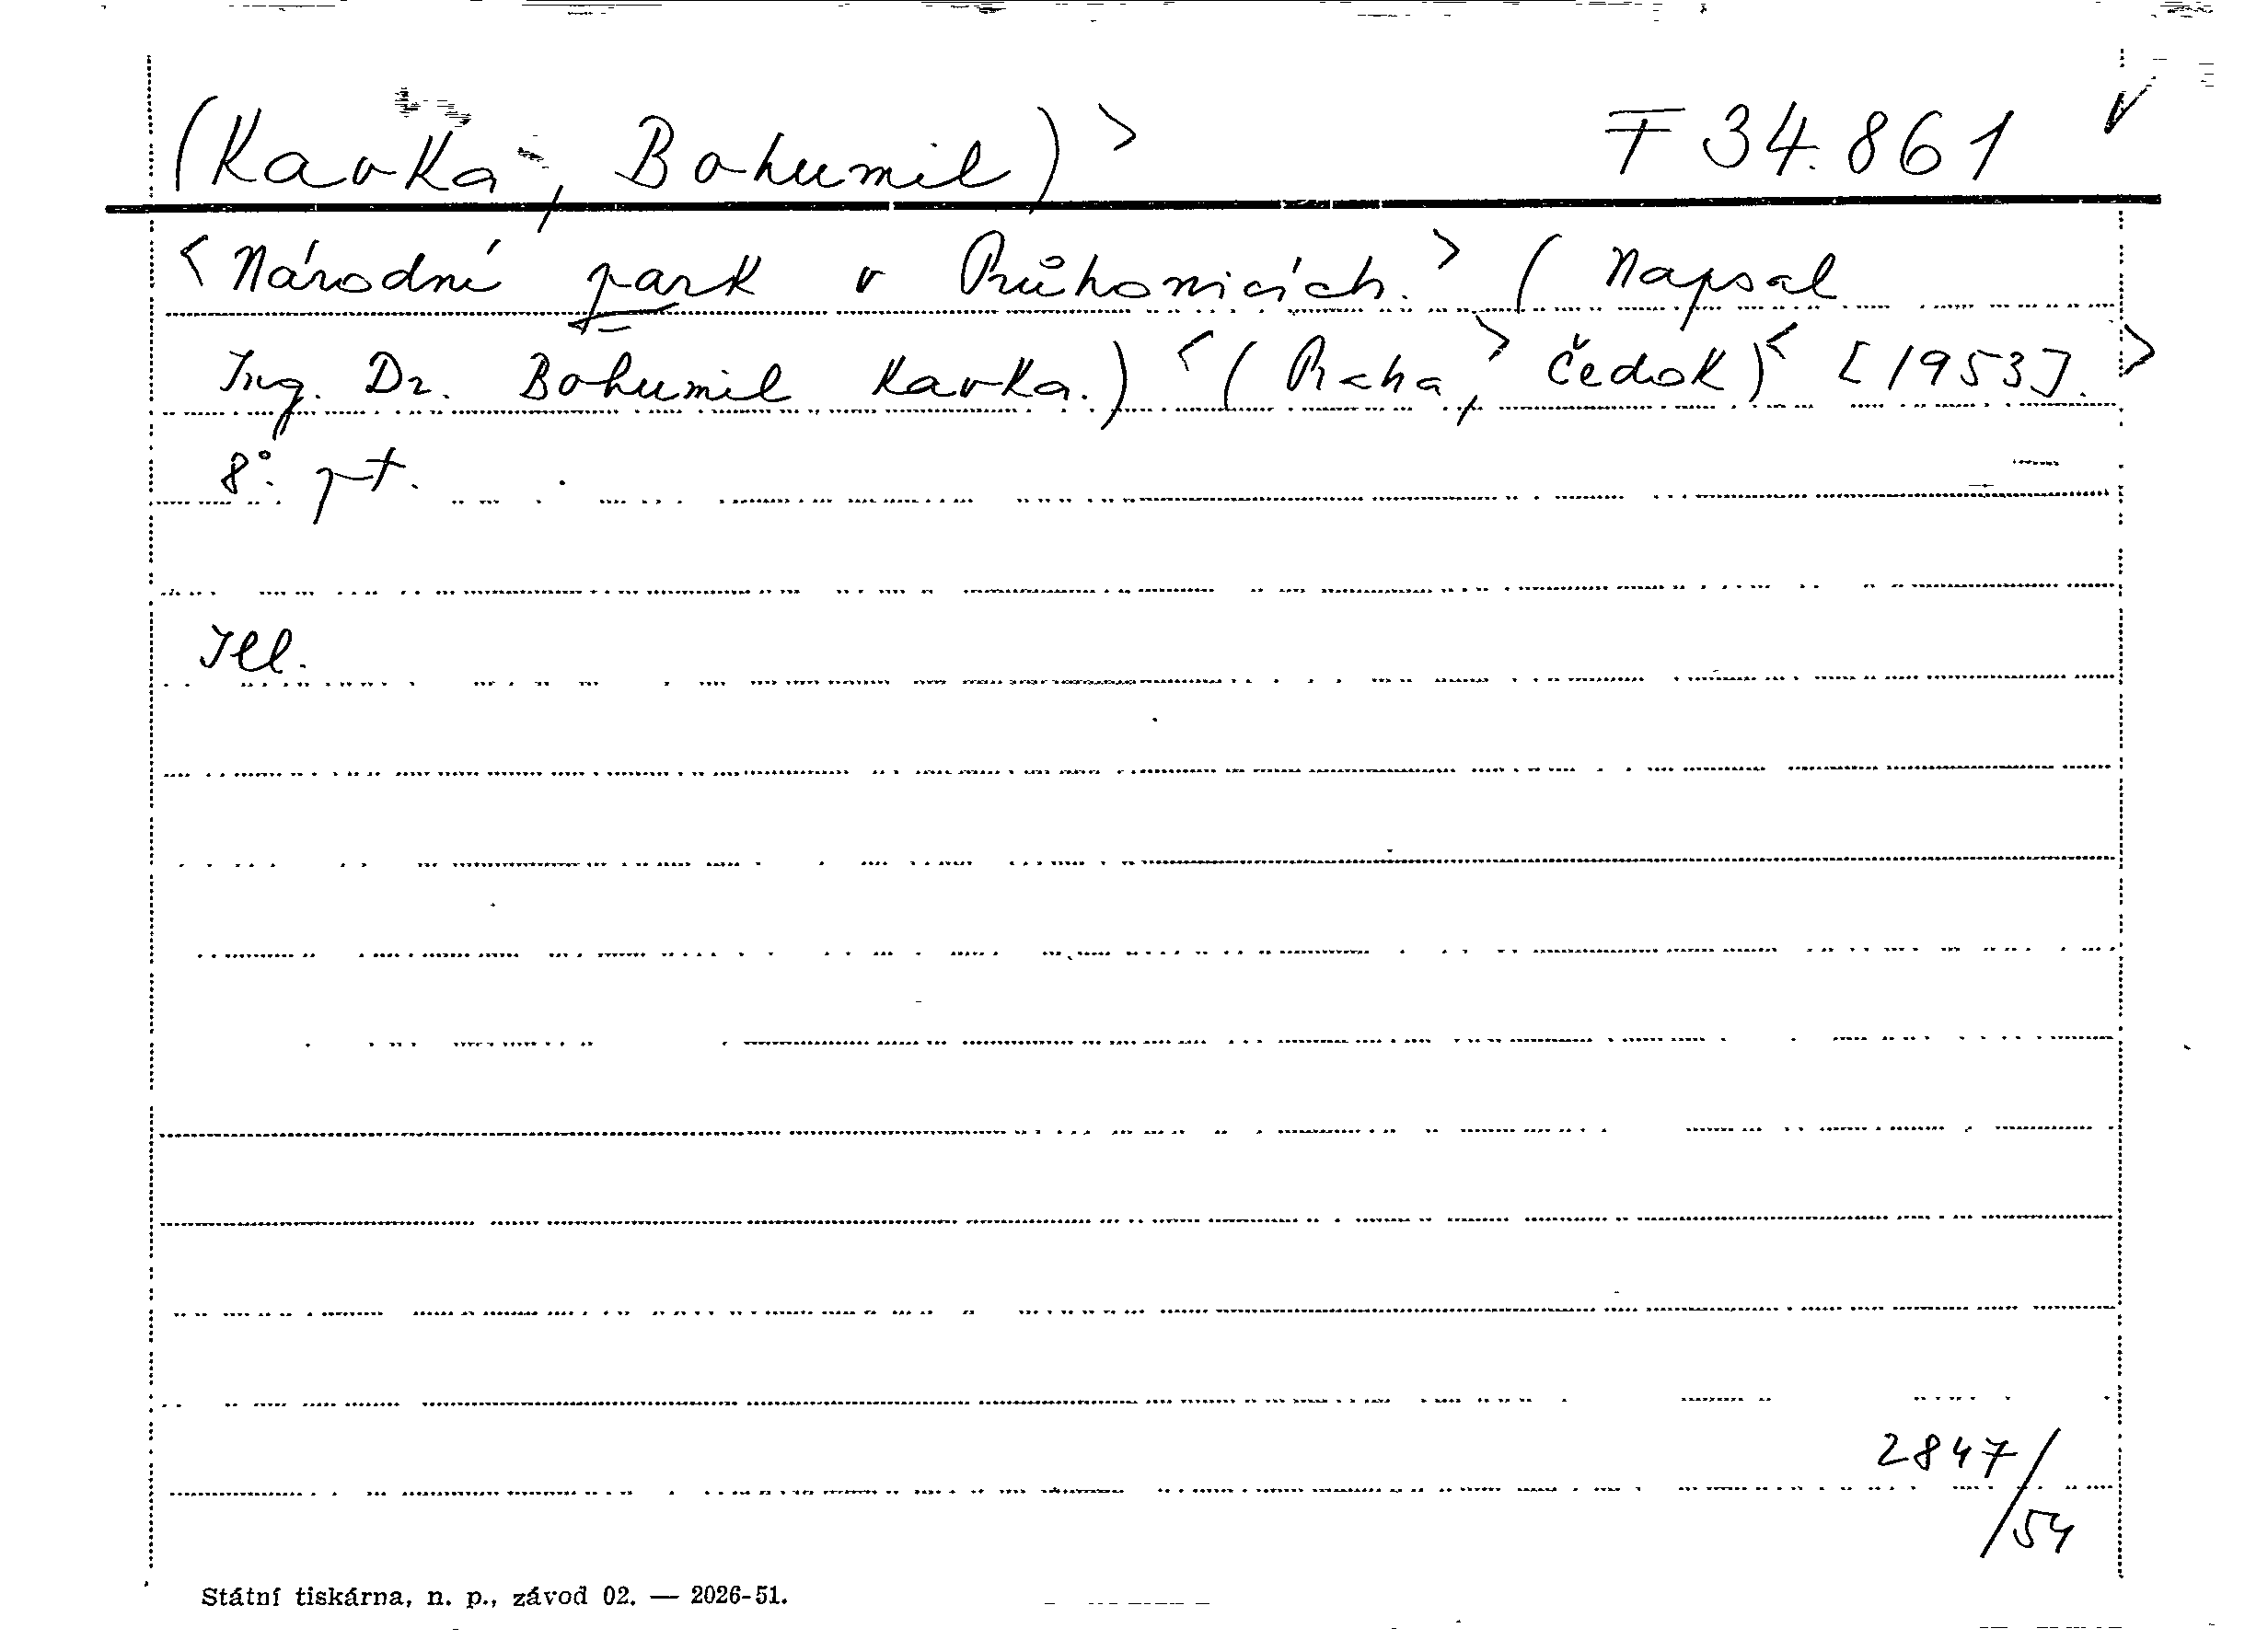 (Kavka, Bohumil) > F 34.861 V
< Národní park v Průhonicích. > ( Napsal
Ing. Dr. Bohumil Kavka.) < ( Praha, > Čedok) < [1953]. >
8°. pt.
Ill.
2847/
/54
Státní tiskárna, n. p., závod 02. — 2026-51.